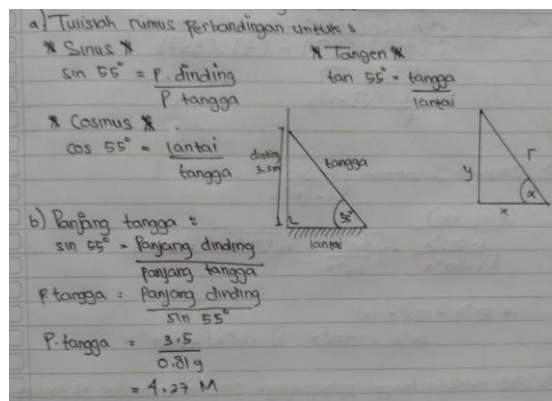 a) Tulislah rumus perbandingan untuk :
* Sinus *
sin 55° = P. dinding
P. tangga
* Tangen *
tan 55° = tangga
lantai
* Cosinus *
cos 55° = lantai
tangga
dinding
3.5m
tangga
55°
lantai
y
r
α
x
b) Panjang tangga :
sin 55° = Panjang dinding
panjang tangga
P. tangga = Panjang dinding
sin 55°
P. tangga = 3.5
0.819
= 4.27 M